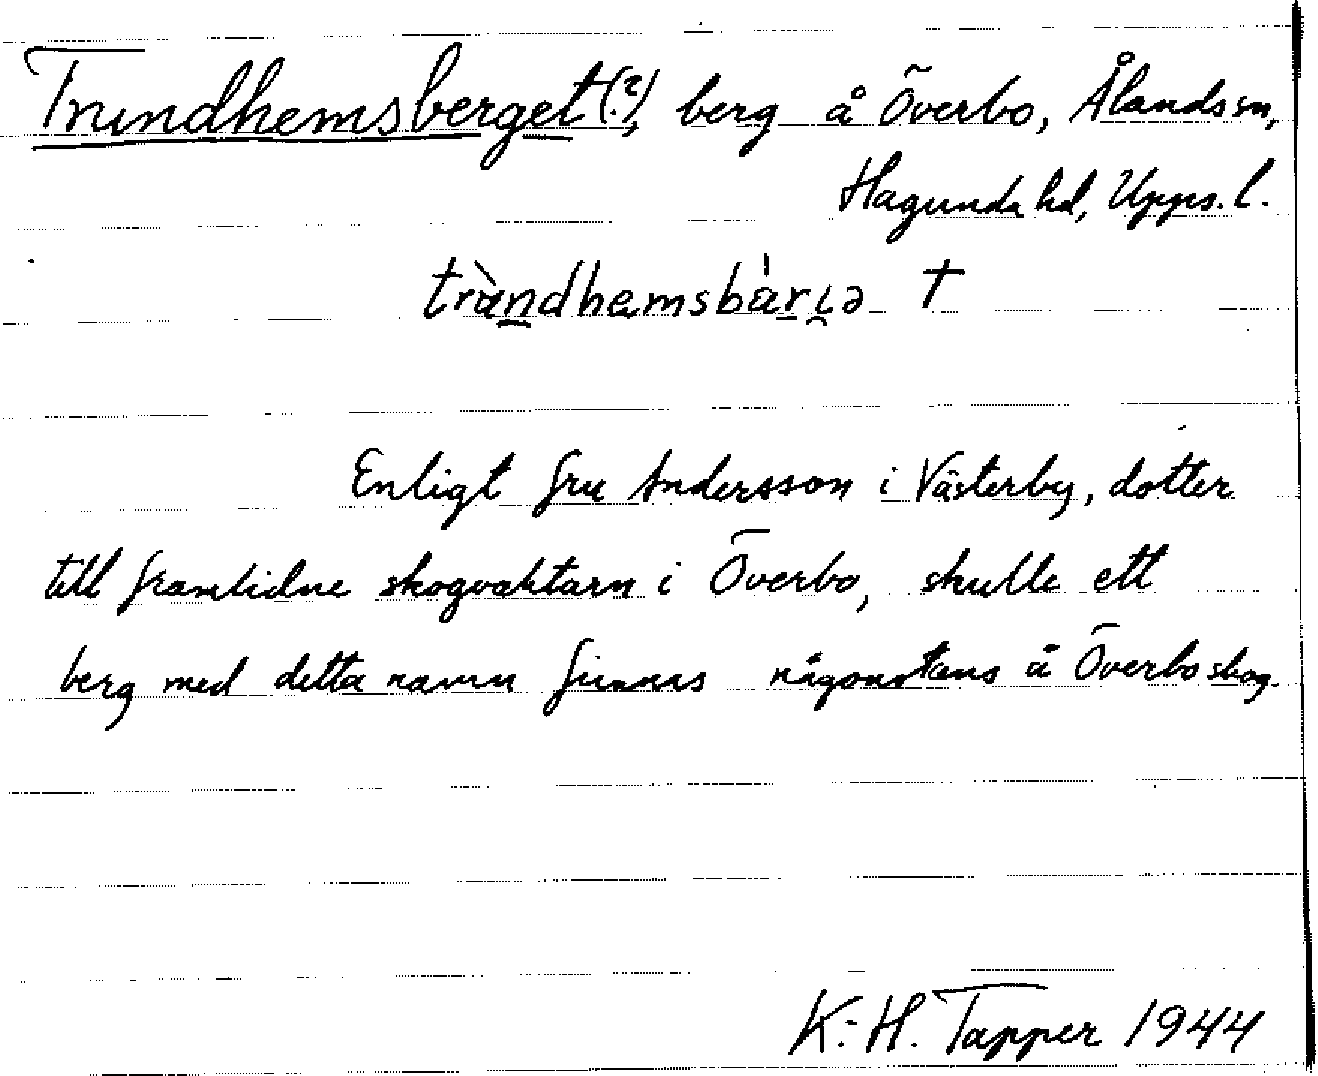 Trundhemsberget(?), berg å Överbo, Ålands sn,
Hagunda hd, Upps. l.
trùndhemsbàrjə †
Enligt fru Andersson i Västerby, dotter
till framlidne skogvaktarn i Överbo, skulle ett
berg med detta namn finnas någonstans å Överbo skog.
K.-H. Tapper 1944